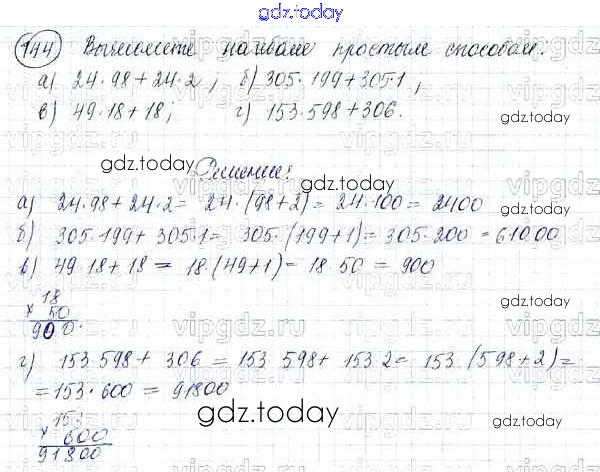 gdz.today
144 Вычислите наиболее простым способом:
а) 24·98+24·2; б) 305·199+305·1;
в) 49·18+18; г) 153·598+306.
gdz.today
gdz.today
Решение:
gdz.today
а) 24·98+24·2= 24·(98+2)= 24·100= 2400
gdz.today
б) 305·199+305·1= 305·(199+1)= 305·200 =61000
в) 49·18+18 = 18·(49+1)= 18·50 = 900
18
× 50
900.
г) 153·598+ 306 = 153 598+ 153 2= 153 (598+2)=
=153·600 = 91800
gdz.today
gdz.today
153
× 600
91800